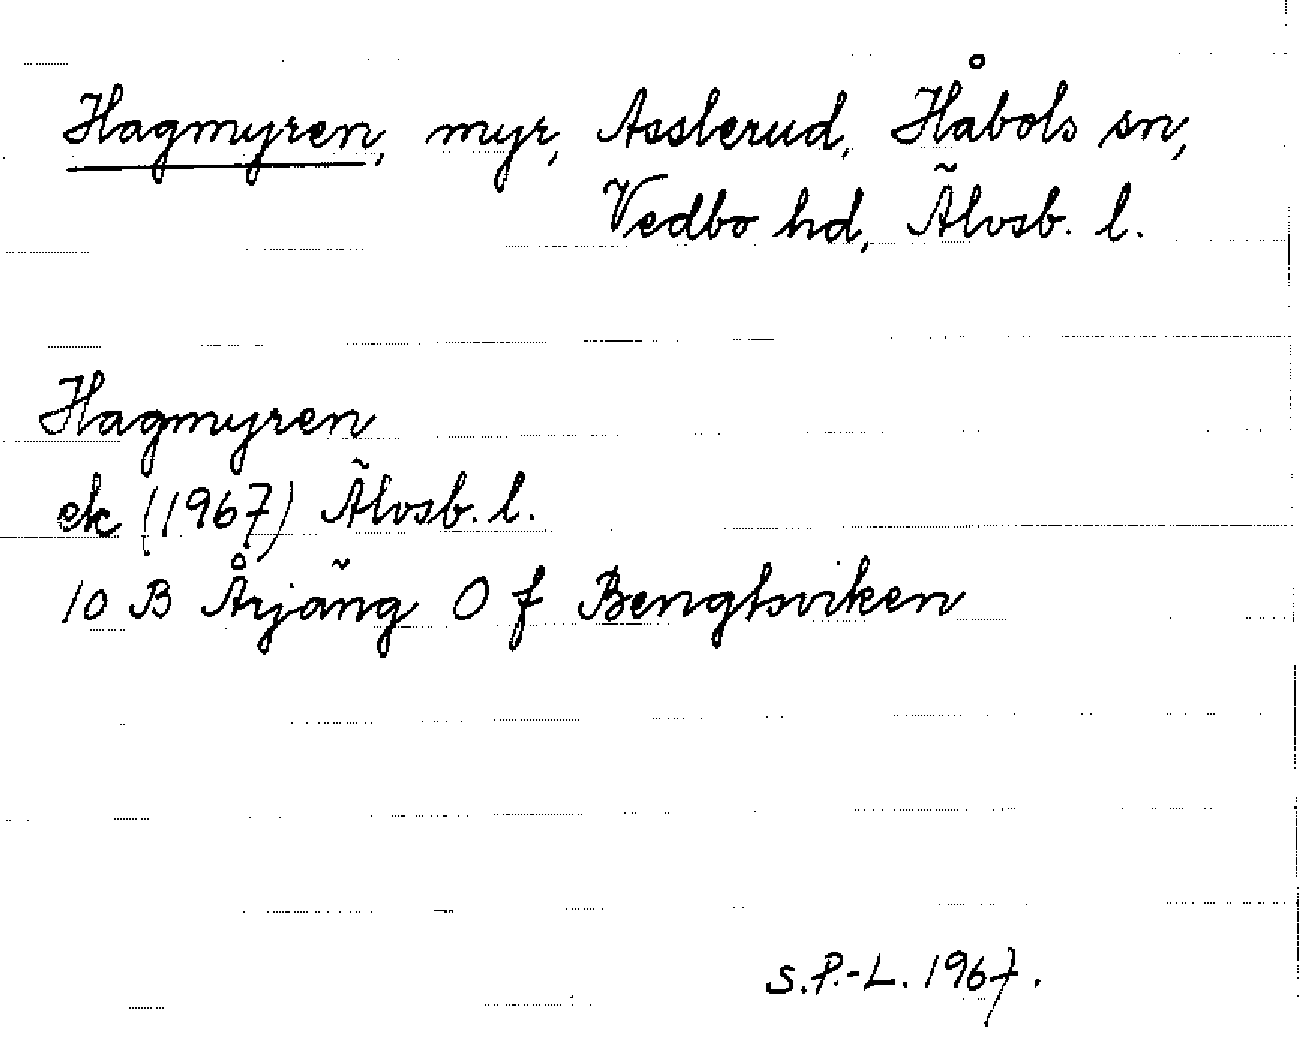 Hagmyren, myr, Asslerud, Håbols sn,
Vedbo hd, Älvsb. l.
Hagmyren
ek (1967) Älvsb. l.
10 B Årjäng 0 f Bengtsviken
S.P.-L. 1967.